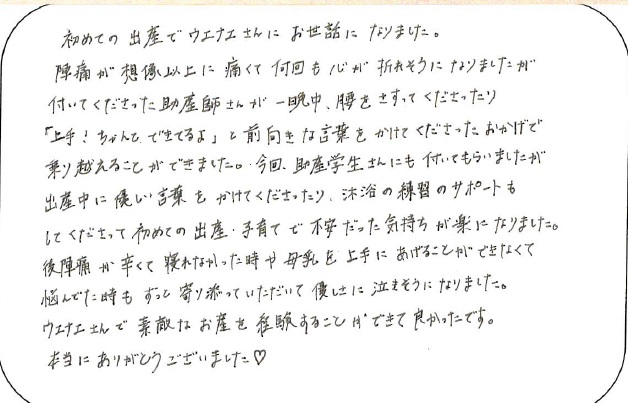 初めての出産でウエナエさんにお世話になりました。
陣痛が想像以上に痛くて何回も心が折れそうになりましたが
付いてくださった助産師さんが一晩中、腰をさすってくださったり
「上手！ちゃんとできてるよ」と前向きな言葉をかけてくださったおかげで
乗り越えることができました。今回、助産学生さんにも付いてもらいましたが
出産中に優しい言葉をかけてくださったり、沐浴の練習のサポートも
してくださって初めての出産・子育てで不安だった気持ちが楽になりました。
後陣痛が辛くて寝れなかった時や母乳を上手にあげることができなくて
悩んでた時もずっと寄り添っていただいて優しさに泣きそうになりました。
ウエナエさんで素敵なお産を経験することができて良かったです。
本当にありがとうございました♡